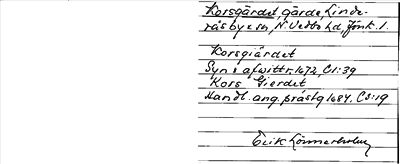 Korsgärdet, gärde, Linde-
rås by o sn, N. Vedbo hd, Jönk. l.
Korsgiärdet
Syn o afwittr. 1672, C1:39
Kors Gierdet
Handl. ang. prästg 1684, C3:19
Erik